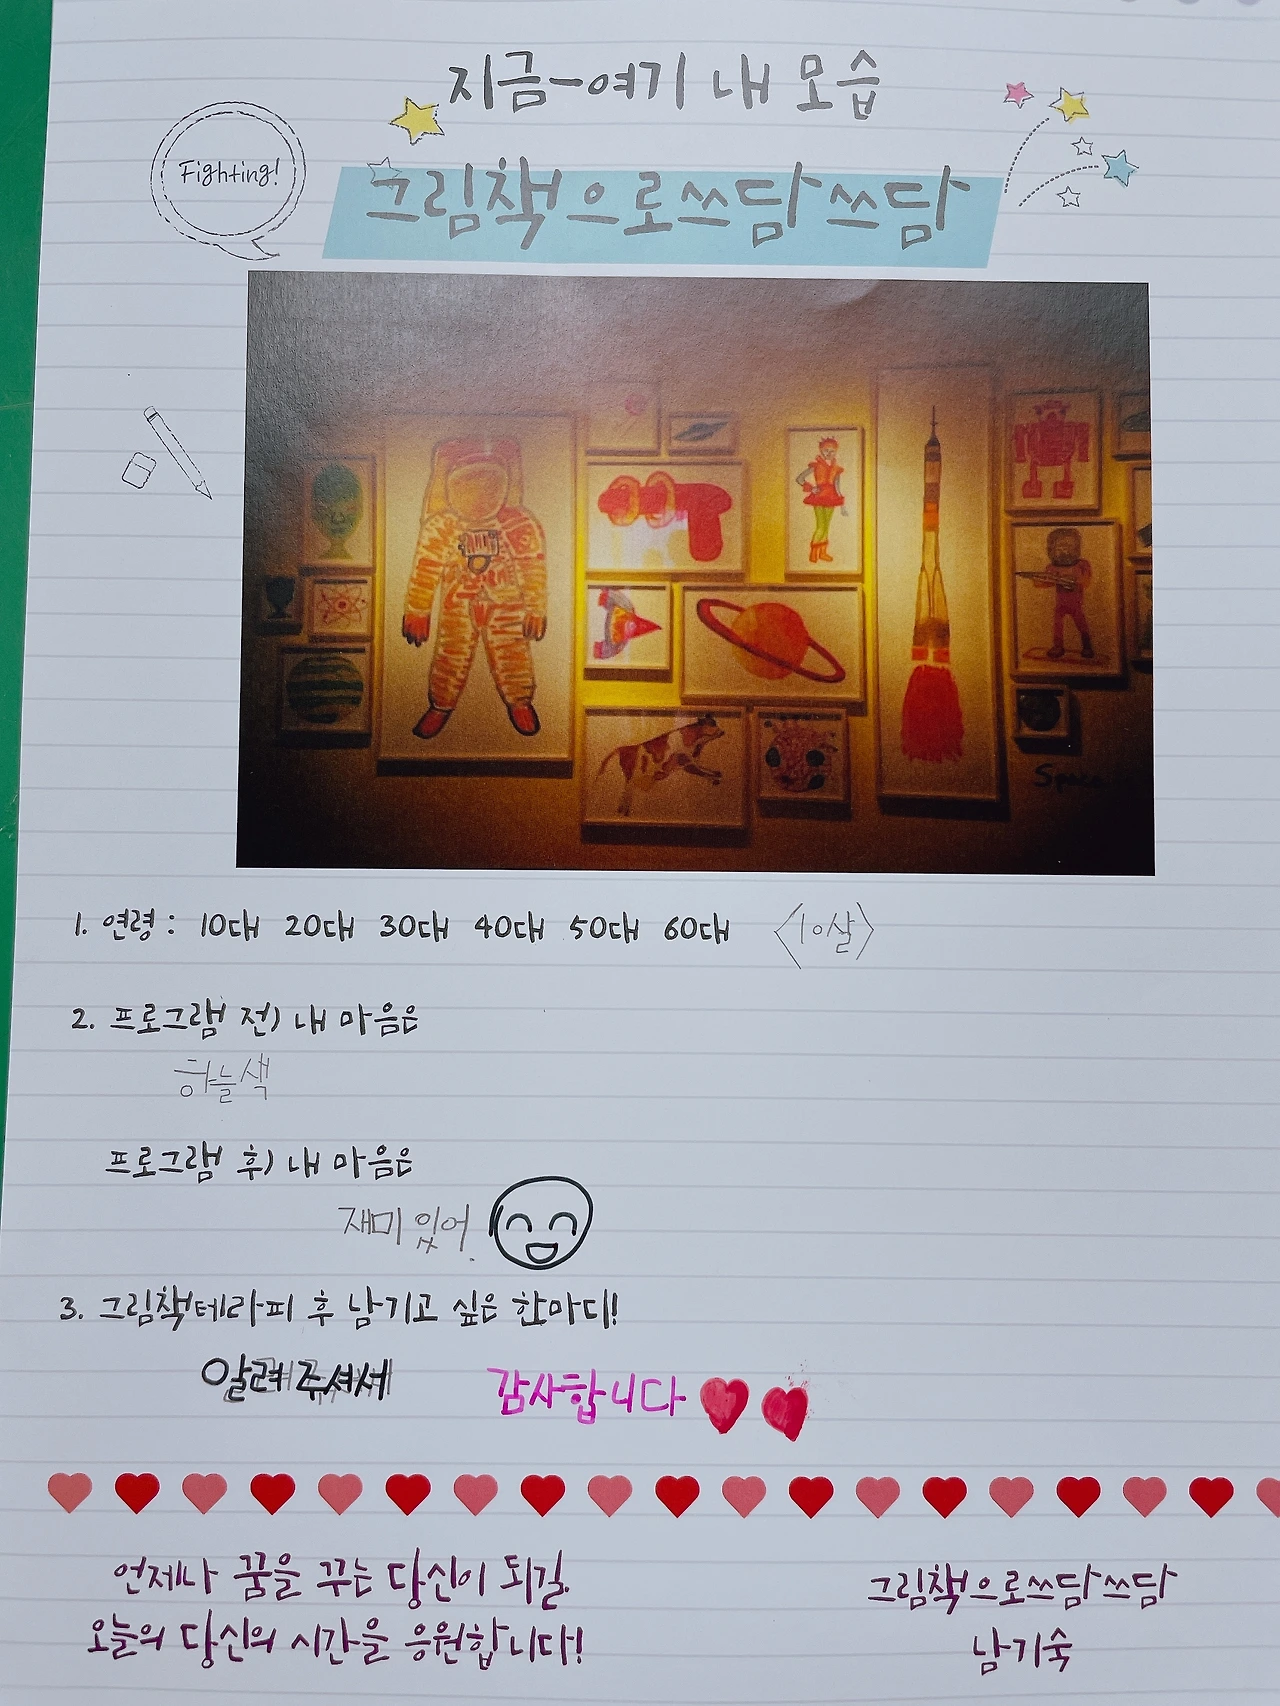 지금-여기 내 모습
Fighting!
그림책으로쓰담쓰담
Space
1. 연령 : 10대 20대 30대 40대 50대 60대 <10살>
2. 프로그램 전) 내 마음은
하늘색
프로그램 후) 내 마음은
재미 있어.
3. 그림책테라피 후 남기고 싶은 한마디!
알려주셔서 감사합니다
언제나 꿈을 꾸는 당신이 되길.
오늘의 당신의 시간을 응원합니다!
그림책으로쓰담쓰담
남기숙